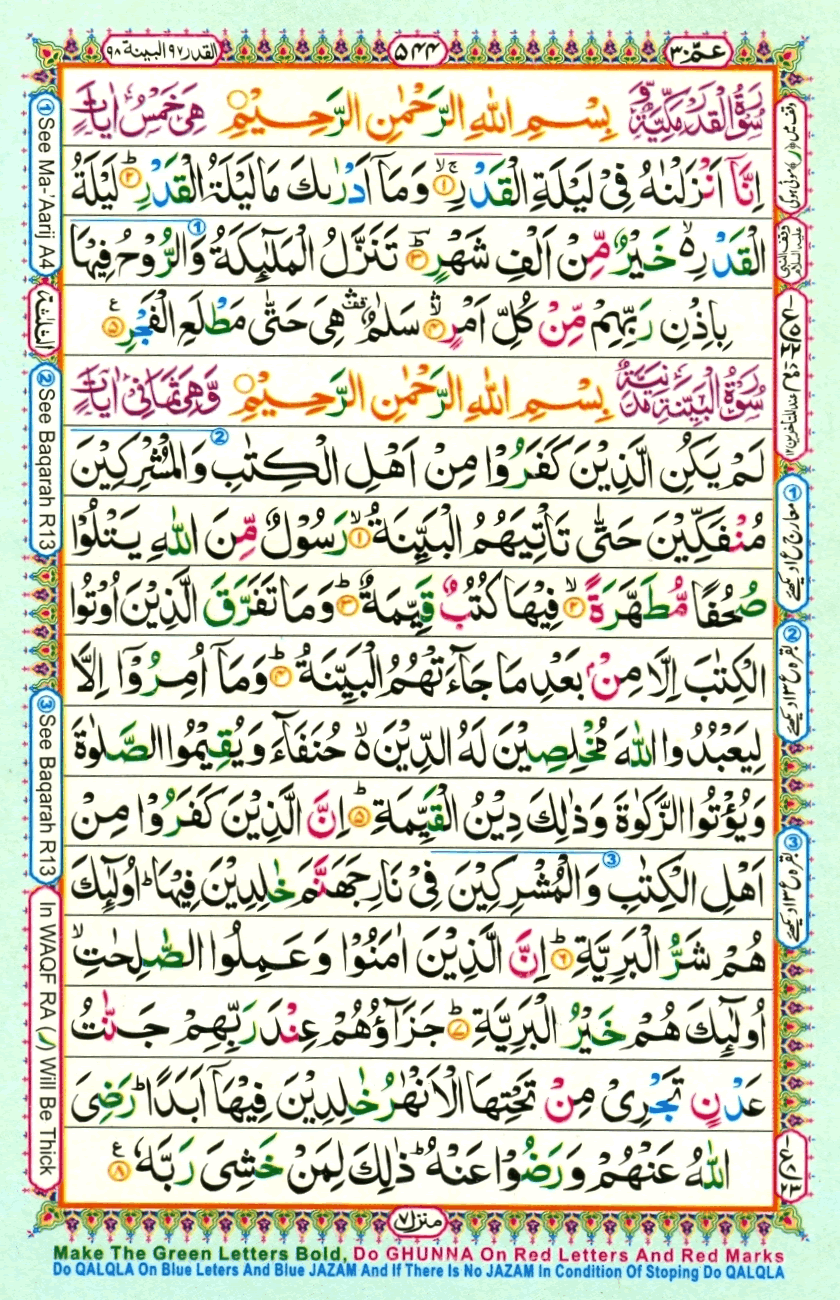 القدر ٩٧ البينة ٩٨
٥٤٤
عمّ ٣٠
سُوْرَةُ الْقَدْرِ مَكِّيَّةٌ وَّ بِسْمِ اللهِ الرَّحْمٰنِ الرَّحِيْمِ هِىَ خَمْسُ اٰيَاتٍ
اِنَّاۤ اَنْزَلْنٰهُ فِىْ لَيْلَةِ الْقَدْرِ ۚۖ ﴿۱﴾ وَمَاۤ اَدْرٰٮكَ مَا لَيْلَةُ الْقَدْرِؕ ﴿۲﴾ لَيْلَةُ
الْقَدْرِ ۙ خَيْرٌ مِّنْ اَلْفِ شَهْرٍؕ ﴿۳﴾ تَنَزَّلُ الْمَلٰٓٮِٕكَةُ وَالرُّوْحُ فِيْهَا
بِاِذْنِ رَبِّهِمْ مِّنْ كُلِّ اَمْرٍ ۛۙ ﴿۴﴾ سَلٰمٌ ۛ هِىَ حَتّٰى مَطْلَعِ الْفَجْرِ ﴿۵﴾
سُوْرَةُ الْبَيِّنَةِ مَدَنِيَّةٌ بِسْمِ اللهِ الرَّحْمٰنِ الرَّحِيْمِ وَّهِىَ ثَمَانِىْ اٰيَاتٍ
لَمْ يَكُنِ الَّذِيْنَ كَفَرُوْا مِنْ اَهْلِ الْكِتٰبِ وَالْمُشْرِكِيْنَ
مُنْفَكِّيْنَ حَتّٰى تَاْتِيَهُمُ الْبَيِّنَةُ ۙ ﴿۱﴾ رَسُوْلٌ مِّنَ اللهِ يَتْلُوْا
صُحُفًا مُّطَهَّرَةً ۙ ﴿۲﴾ فِيْهَا كُتُبٌ قَيِّمَةٌ ؕ ﴿۳﴾ وَمَا تَفَرَّقَ الَّذِيْنَ اُوْتُوا
الْكِتٰبَ اِلَّا مِنْۢ بَعْدِ مَا جَآءَتْهُمُ الْبَيِّنَةُ ؕ ﴿۴﴾ وَمَاۤ اُمِرُوْۤا اِلَّا
لِيَعْبُدُوا اللهَ مُخْلِصِيْنَ لَهُ الدِّيْنَ ۙ حُنَفَآءَ وَيُقِيْمُوا الصَّلٰوةَ
وَيُؤْتُوا الزَّكٰوةَ وَذٰلِكَ دِيْنُ الْقَيِّمَةِ ؕ ﴿۵﴾ اِنَّ الَّذِيْنَ كَفَرُوْا مِنْ
اَهْلِ الْكِتٰبِ وَالْمُشْرِكِيْنَ فِىْ نَارِ جَهَنَّمَ خٰلِدِيْنَ فِيْهَا ؕ اُولٰٓٮِٕكَ
هُمْ شَرُّ الْبَرِيَّةِ ؕ ﴿۶﴾ اِنَّ الَّذِيْنَ اٰمَنُوْا وَعَمِلُوا الصّٰلِحٰتِ ۙ
اُولٰٓٮِٕكَ هُمْ خَيْرُ الْبَرِيَّةِ ؕ ﴿۷﴾ جَزَآؤُهُمْ عِنْدَ رَبِّهِمْ جَنّٰتُ
عَدْنٍ تَجْرِىْ مِنْ تَحْتِهَا الْاَنْهٰرُ خٰلِدِيْنَ فِيْهَاۤ اَبَدًا ؕ رَضِىَ
اللهُ عَنْهُمْ وَرَضُوْا عَنْهُ ؕ ذٰلِكَ لِمَنْ خَشِىَ رَبَّهٗ ﴿۸﴾
منزل ٧
① See Ma-'Aarij A4
الثلثة
② See Baqarah R13
③ See Baqarah R13
In WAQF RA (ر) Will Be Thick
Make The Green Letters Bold, Do GHUNNA On Red Letters And Red Marks
Do QALQLA On Blue Leters And Blue JAZAM And If There Is No JAZAM In Condition Of Stoping Do QALQLA